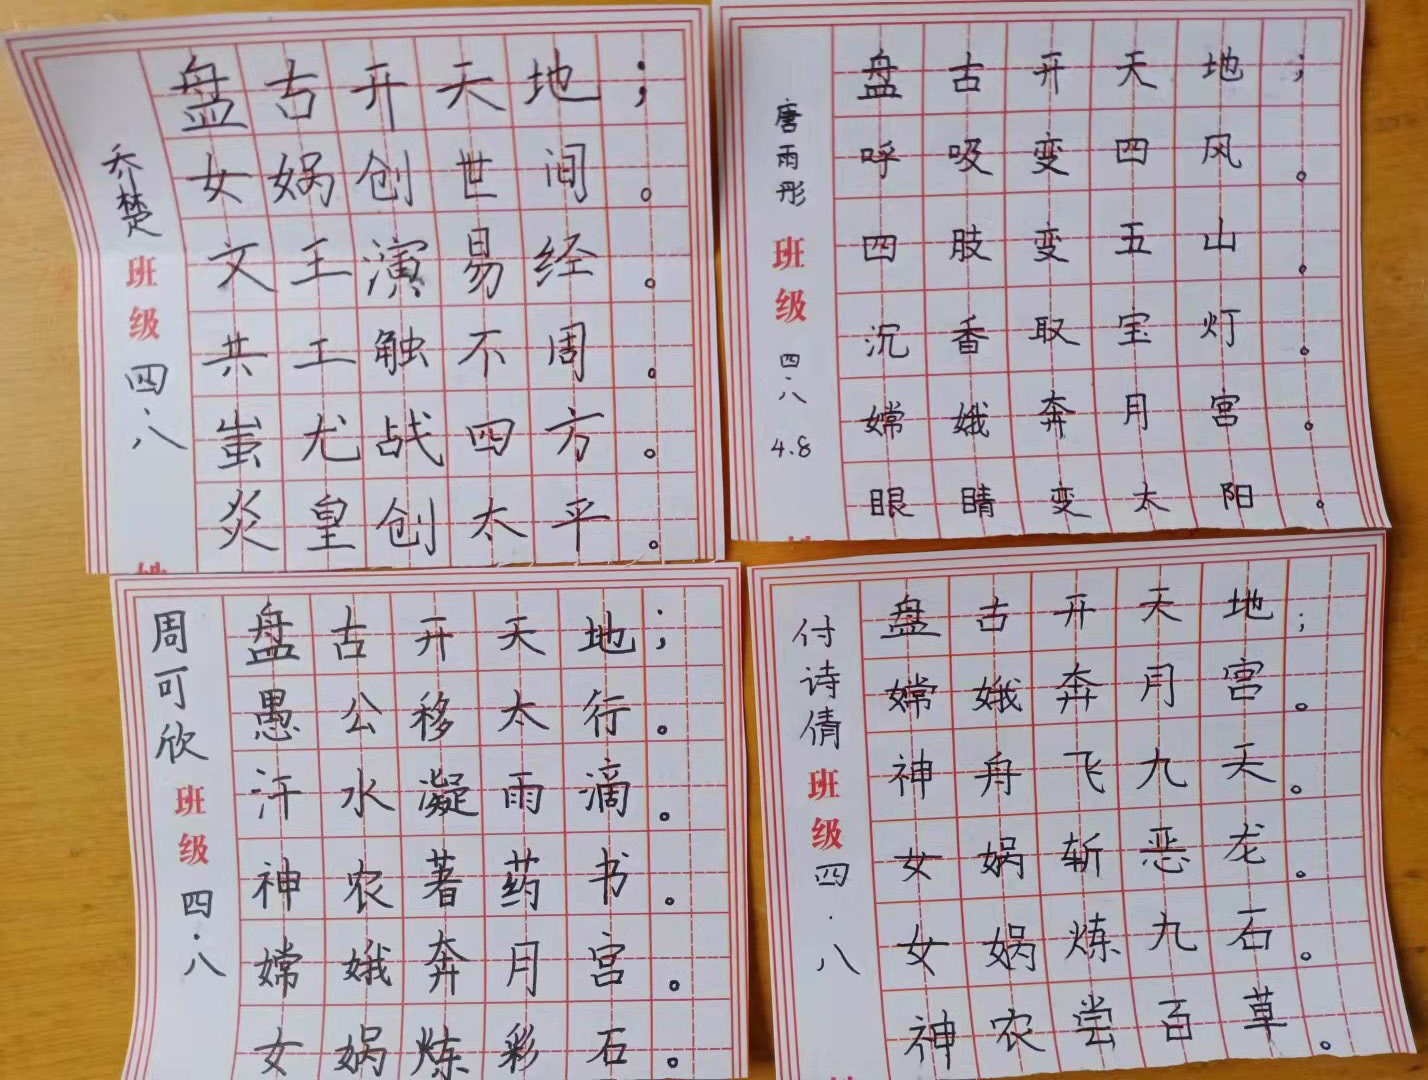 乔楚
班级
四.八
盘古开天地；
女娲创世间。
文王演易经。
共工触不周。
蚩尤战四方。
炎皇创太平。
唐雨彤
班级
四.八
4.8
盘古开天地；
呼吸变四风。
四肢变五山。
沉香取宝灯。
嫦娥奔月宫。
眼睛变太阳。
周可欣
班级
四.八
盘古开天地；
愚公移太行。
汗水凝雨滴。
神农著药书。
嫦娥奔月宫。
女娲炼彩石。
付诗倩
班级
四.八
盘古开天地；
嫦娥奔月宫。
神舟飞九天。
女娲斩恶龙。
女娲炼九石。
神农尝百草。